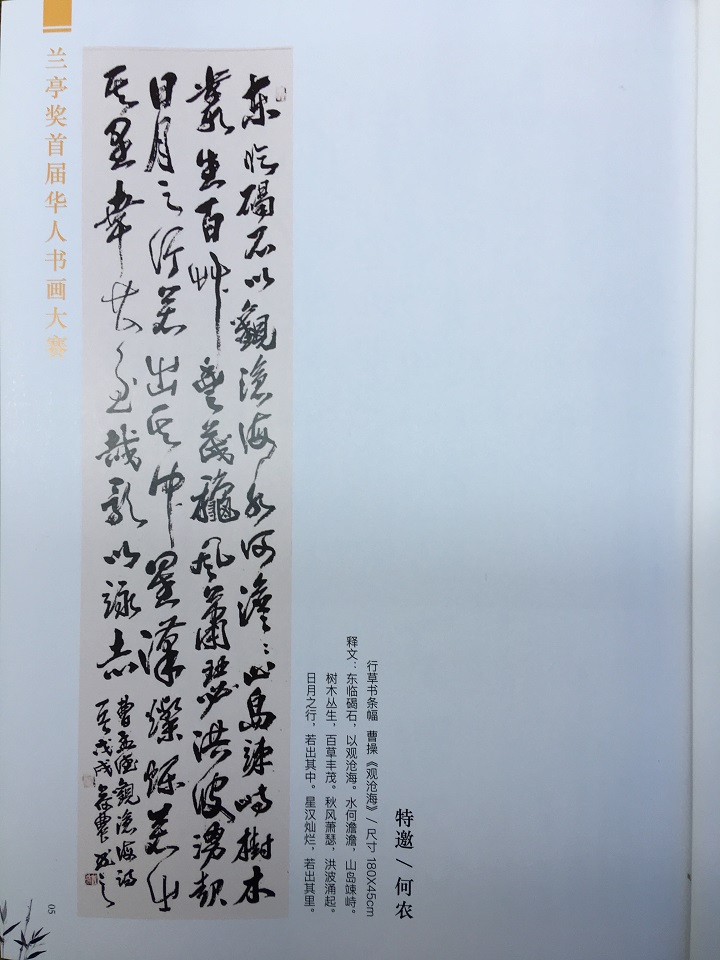 兰亭奖首届华人书画大赛
東临碣石以觀滄海水何澹〻山島竦峙樹木
叢生百艸豐茂龝風蕭瑟洪波湧起
日月之行若出其中星漢燦爛若出
其里幸甚至哉歌以詠志
曹孟德觀滄海詩
戊戌
特邀/何农
行草书条幅 曹操《观沧海》/尺寸 180X45cm
释文：东临碣石，以观沧海。水何澹澹，山岛竦峙。
树木丛生，百草丰茂。秋风萧瑟，洪波涌起。
日月之行，若出其中。星汉灿烂，若出其里。
05